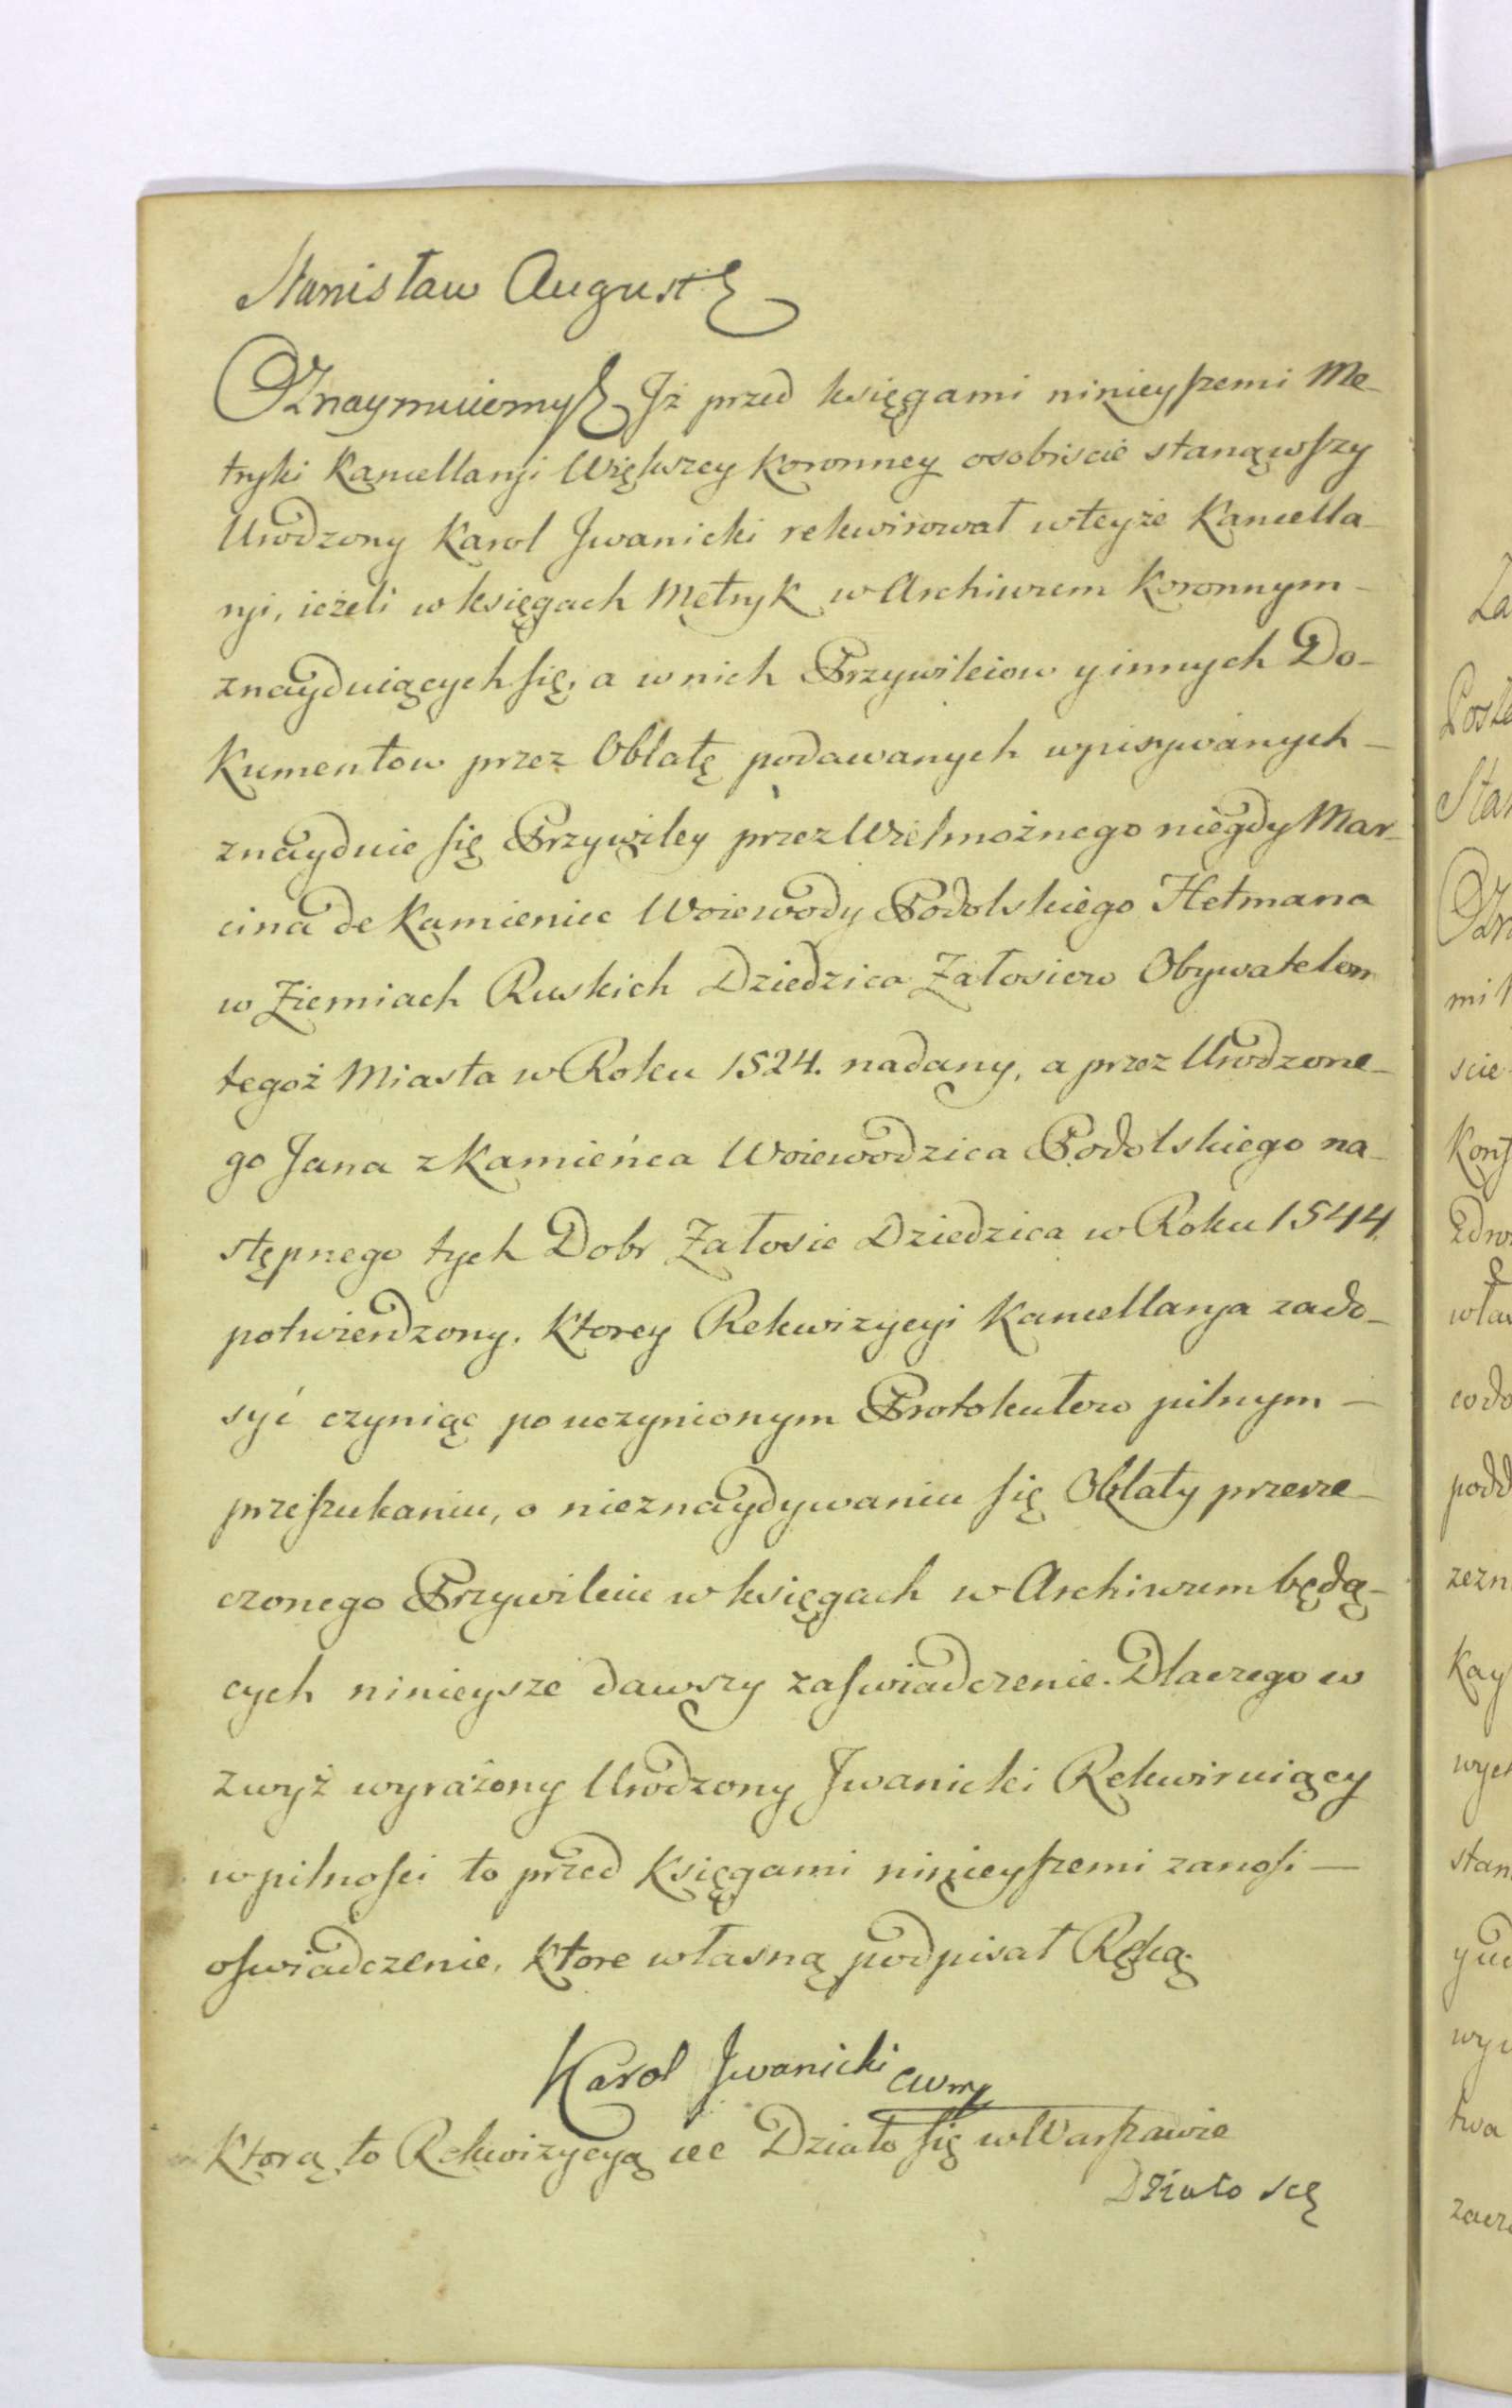 Stanisław August
Oznaymuiemy Jż przed księgami ninieyszemi Me-
tryki Kancellaryi Większey Koronney osobiscie stanąwszy
Urodzony Karol Jwanicki rekwirował wteyże Kancella-
ryi, ieżeli w księgach Metryk w Archiwum Koronnym -
znayduiących się, a w nich Przywileiow y innych Do-
kumentow przez Oblatę podawanych wpisywanych -
znayduie się Przywiley przez Wielmożnego niegdy Mar-
cina de Kamieniec Woiewody Podolskiego Hetmana
w Ziemiach Ruskich Dziedzica Załosiew Obywatelom
tegoż Miasta w Roku 1524. nadany, a przez Urodzone-
go Jana z Kamieńca Woiewodzica Podolskiego na-
stępnego tych Dobr Załosie Dziedzica w Roku 1544.
potwierdzony. Ktorey Rekwizycyi Kancellarya zado-
syć czyniąc po uczynionym Protokułow pilnym -
przeszukaniu, o nieznaydywaniu się Oblaty przerze-
czonego Przywileiu w księgach w Archiwum będą-
cych ninieysze dawszy zaswiadczenie. Dlaczego w
zwyż wyrażony Urodzony Jwanicki Rekwiruiący
w pilnosci to przed Księgami ninieyszemi zanosi -
oswiadczenie, ktore własną podpisał Ręką.
Karol Jwanicki
Ktorą to Rekwizycyą &c Działo się w Warszawie
Działo się